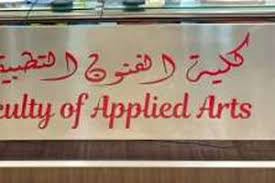 كلية الفنون التطبيق
culty of Applied Arts